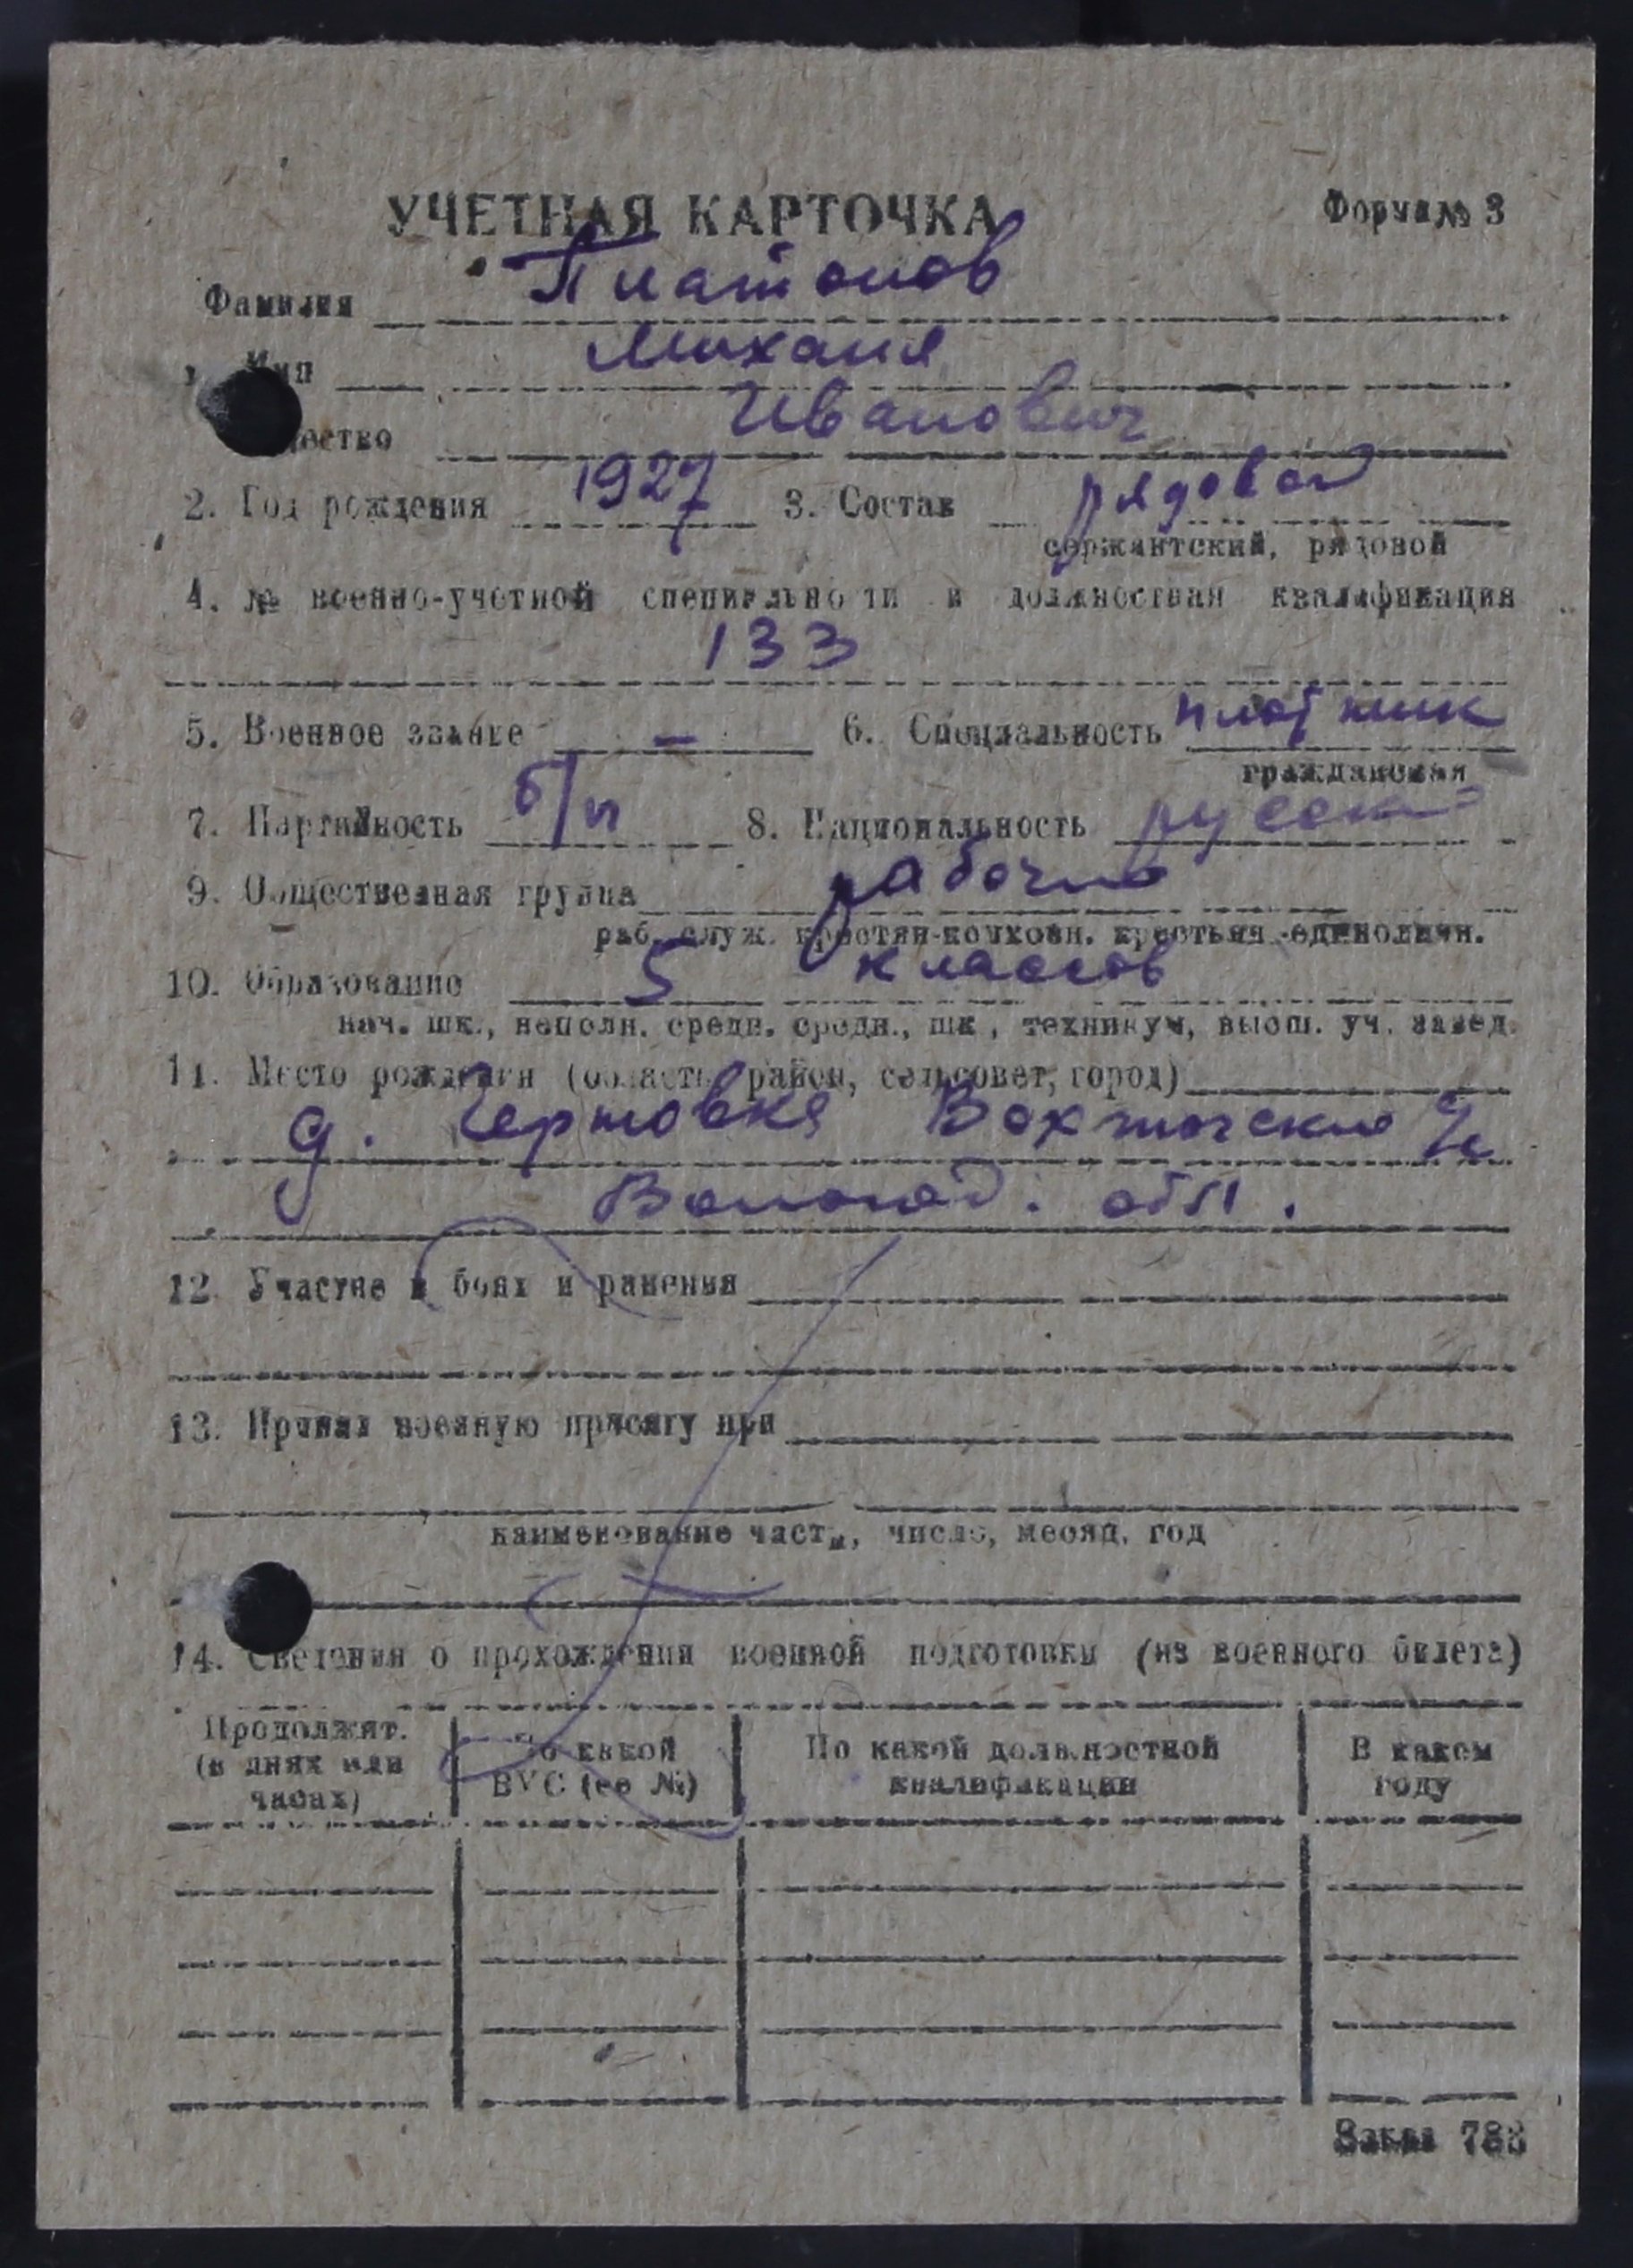 УЧЕТНАЯ КАРТОЧКА Форма № 3
Фамилия Платонов
1. Имя Михаил
Отчество Иванович
2. Год рождения 1927 3. Состав рядовой
сержантский, рядовой
4. № военно-учетной специальности и должностная квалификация
133
5. Военное звание - 6. Специальность плотник
гражданская
7. Партийность б/п 8. Национальность русский
9. Общественная группа рабочий
раб. служ. крестян-колховн. крестьян-единоличн.
10. Образование 5 классов
нач. шк., неполн. средн. средн., шк, техникум, высш. уч. завед.
11. Место рождения (область, район, сельсовет, город)
д. Чертовка
Вологод. обл.
12. Участие в боях и ранения
13. Принял военную присягу при
наименование части, число, месяц, год
14. Сведения о прохождении военной подготовки (из военного билета)
Продолжит. (в днях или часах) По какой ВУС (ее №) По какой должностной квалификации В каком году
Заказ 783